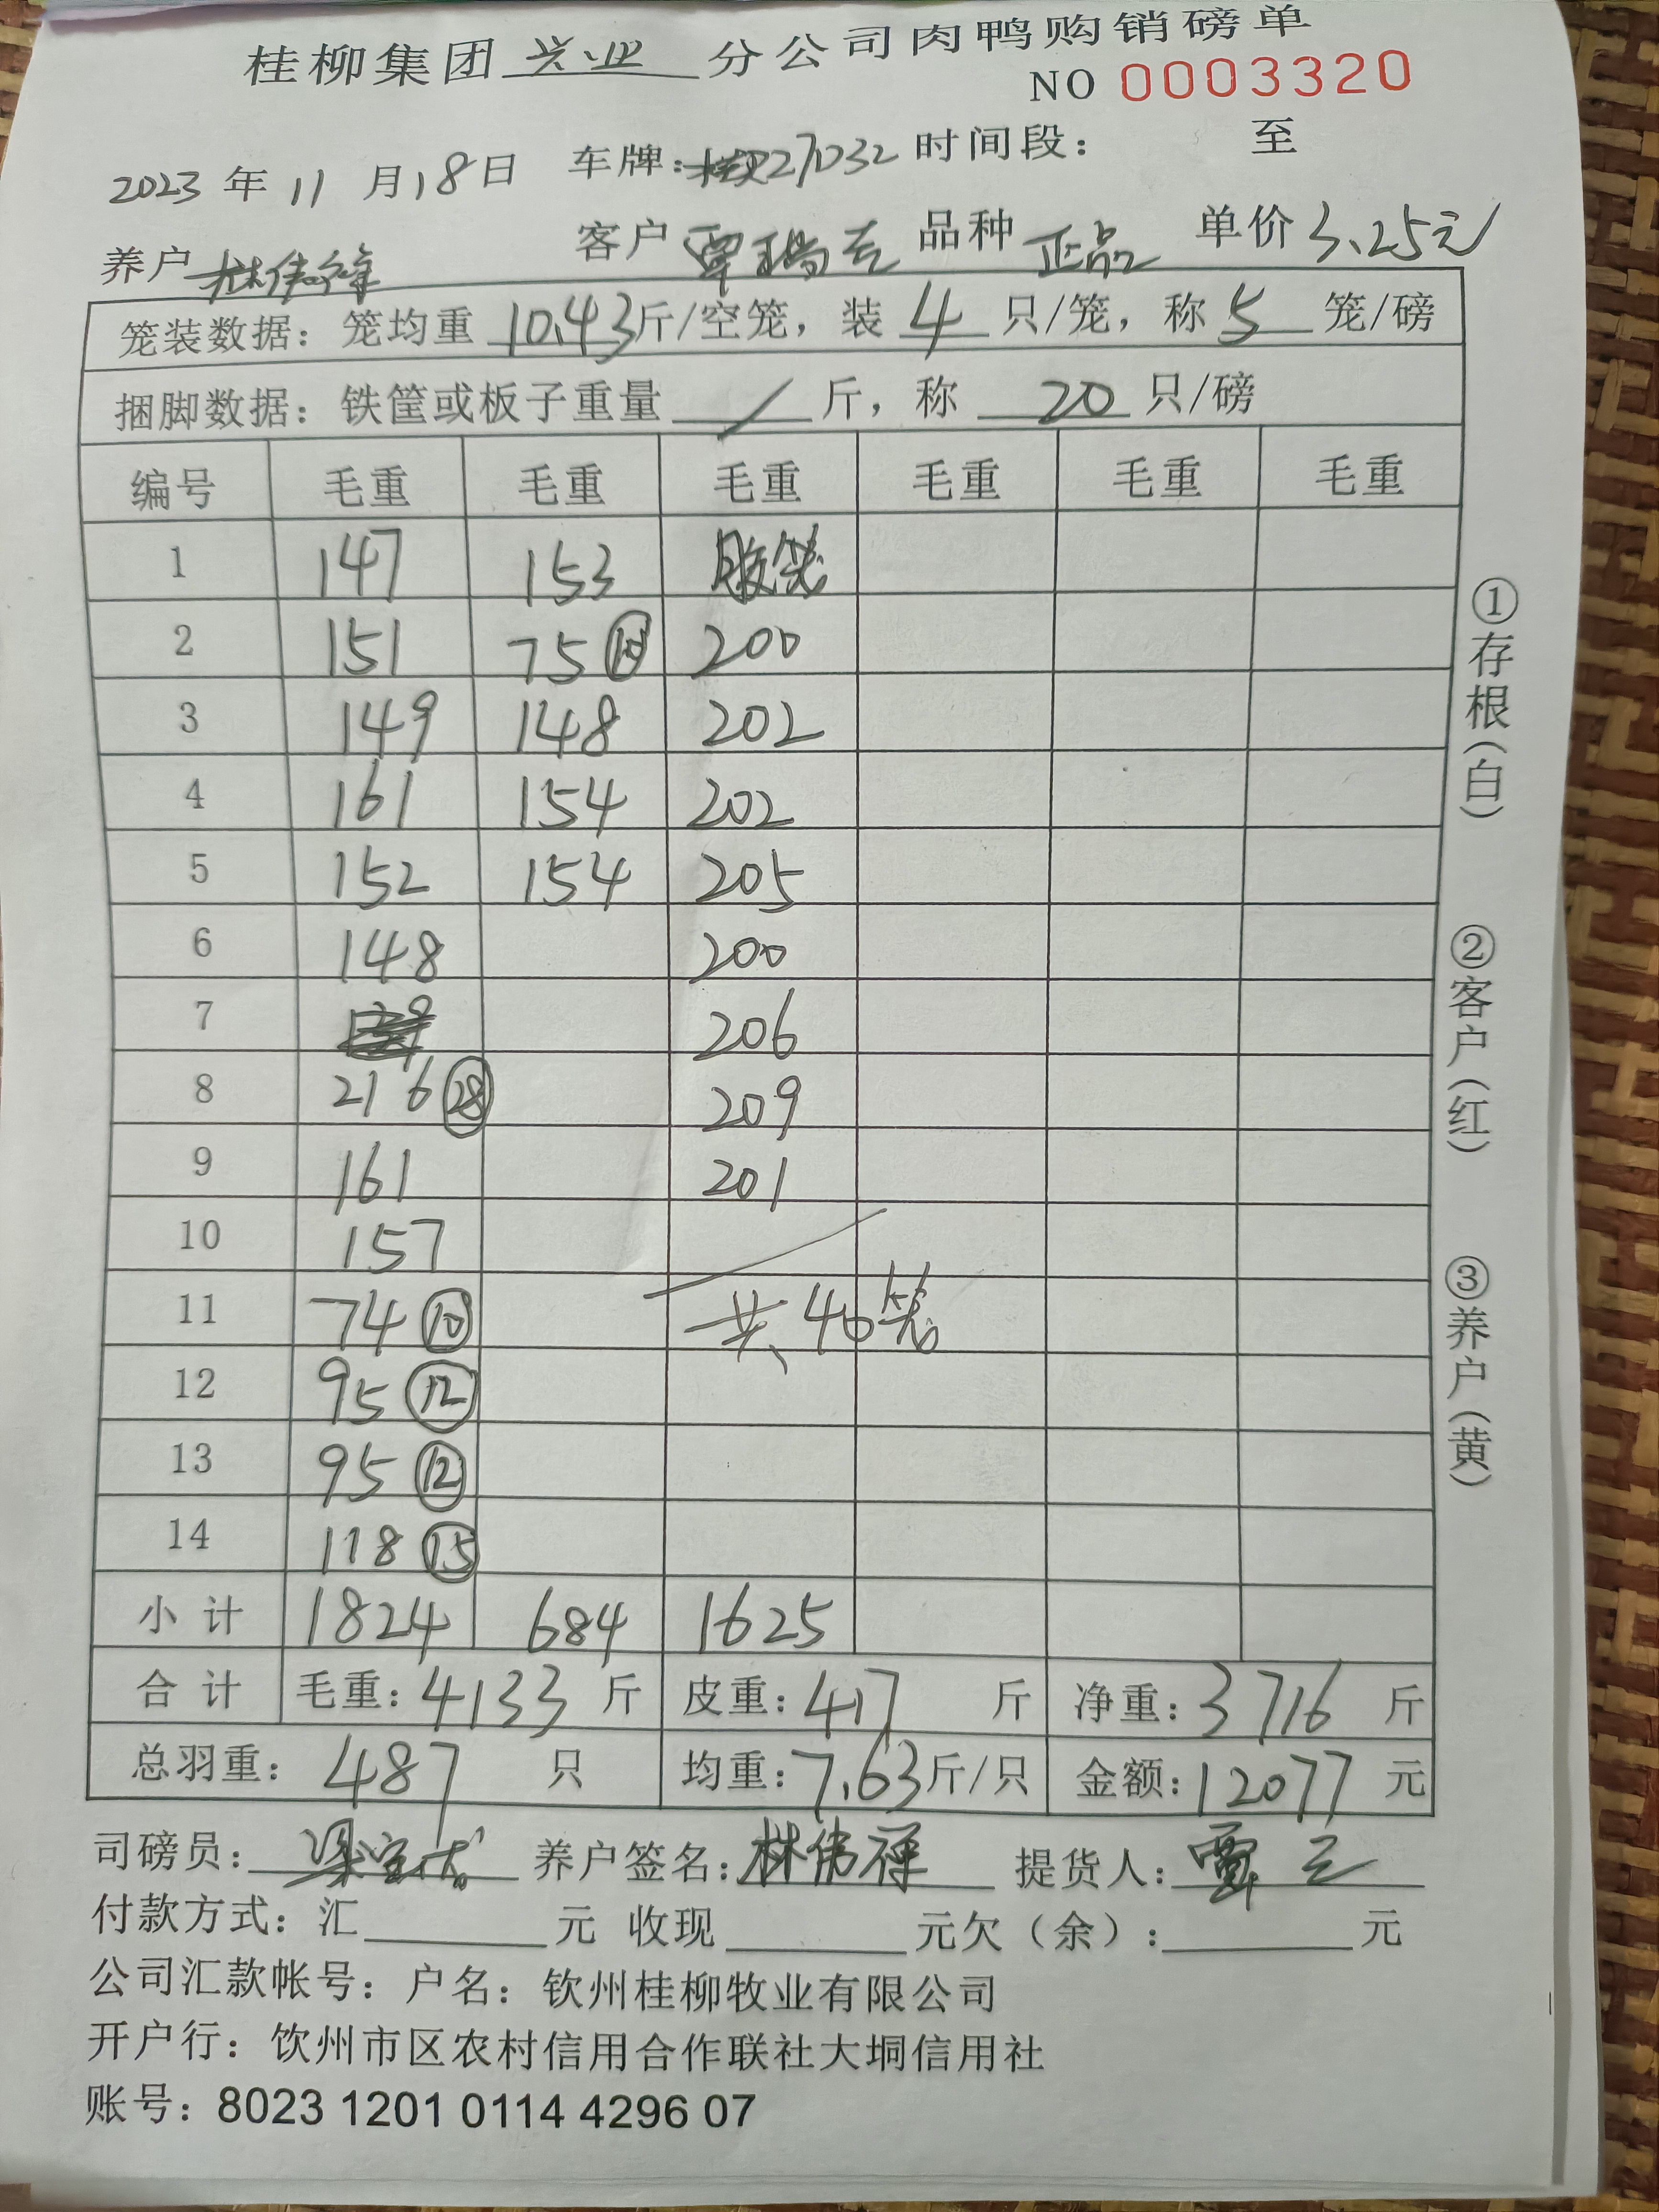 桂柳集团兴业分公司肉鸭购销磅单
NO 0003320
2023年11月18日 车牌:27032 时间段: 至
养户林伟锋 客户覃瑞云 品种正品 单价3.25元
笼装数据: 笼均重 10.43斤/空笼, 装 4 只/笼, 称 5 笼/磅
捆脚数据: 铁筐或板子重量 / 斤, 称 20 只/磅
编号 毛重 毛重 毛重 毛重 毛重 毛重
1 147 153 胶笼
2 151 75 ⑩ 200
3 149 148 202
4 161 154 202
5 152 154 205
6 148 200
7 206
8 216 ㉘ 209
9 161 201
10 157
11 74 ⑩ 共40笼
12 95 ⑫
13 95 ⑫
14 118 ⑮
小计 1824 684 1625
合计 毛重: 4133 斤 皮重: 417 斤 净重: 3716 斤
总羽重: 487 只 均重: 7.63斤/只 金额: 12077 元
司磅员: 养户签名: 林伟祥 提货人: 覃云
付款方式: 汇 元 收现 元欠(余): 元
公司汇款帐号: 户名: 钦州桂柳牧业有限公司
开户行: 饮州市区农村信用合作联社大垌信用社
账号: 8023 1201 0114 4296 07
①存根(白)
②客户(红)
③养户(黄)